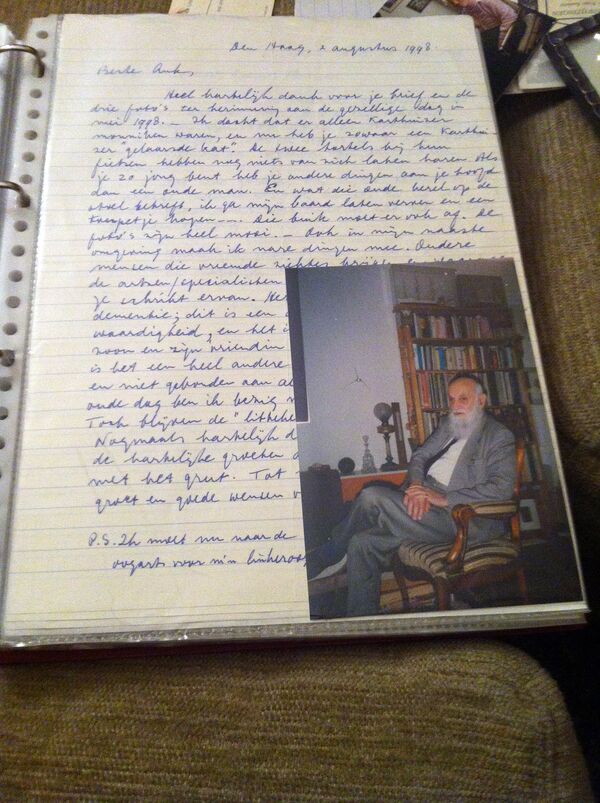 Den Haag, 2 augustus 1998.
Beste Ank,
Heel hartelijk dank voor je brief en de
drie foto's ter herinnering aan de gezellige dag in
mei 1998. - Ik dacht dat er alleen Karthuizer
monniken waren, en nu heb je zowaar een Karthui-
zer "gelaarsde kat". De twee
fietsen hebben nog niets van zich laten horen. Als
je zo jong bent heb je andere dingen aan je hoofd
dan een oude man. En wat die oude kerel op de
stoel betreft, ik ga mijn baard laten verven en een
toupetje kopen -. Die buik moet er ook af. De
foto's zijn heel mooi. - Ook in mijn naaste
omgeving maak ik nare dingen mee. Oudere
mensen die vreemde ziektes krijgen
de artsen/specialisten
je schrikt ervan.
dementie; dit is een
waardigheid, en het
zoon en zijn vriendin
is het een heel andere
en niet gebonden aan
oude dag ben ik bezig
Toch blijven de
Nogmaals hartelijk
de hartelijke groeten
met het grut. Tot
groet en goede wensen
P.S. Ik moet nu naar de
oogarts voor m'n